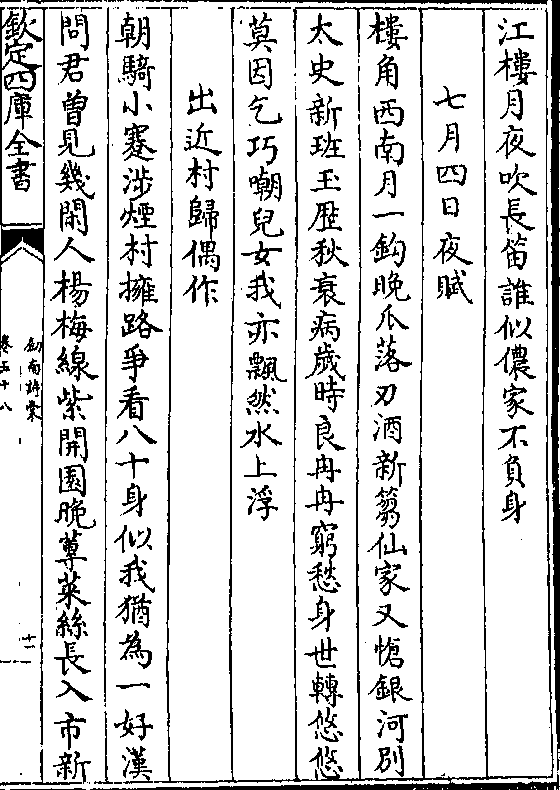 江樓月夜吹長笛誰似儂家不負身
七月四日夜賦
樓角西南月一鈎晚瓜落刃酒新篘仙家又愴銀河別
太史新班玉歴秋衰病歲時良冉冉窮愁身世轉悠悠
莫因乞巧嘲兒女我亦飄然水上浮
出近村歸偶作
朝騎小蹇涉煙村擁路爭看八十身似我猶為一好漢
問君曽見幾閒人楊梅線紫開園晚蓴菜絲長入市新
欽定四庫全書
劔南詩稾
卷五十八
十一